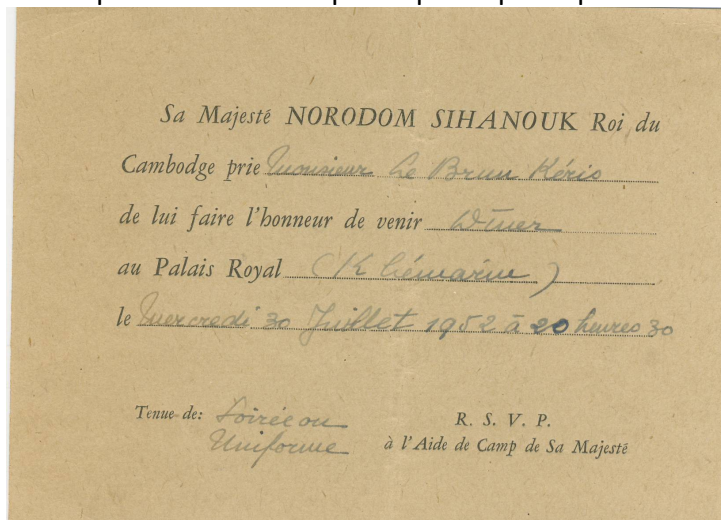 Sa Majesté NORODOM SIHANOUK Roi du
Cambodge prie Monsieur Le Brun Kéris
de lui faire l'honneur de venir Dîner
au Palais Royal (Khémarin)
le Mercredi 30 Juillet 1952 à 20 heures 30
Tenue de: Soirée ou
Uniforme
R. S. V. P.
à l'Aide de Camp de Sa Majesté